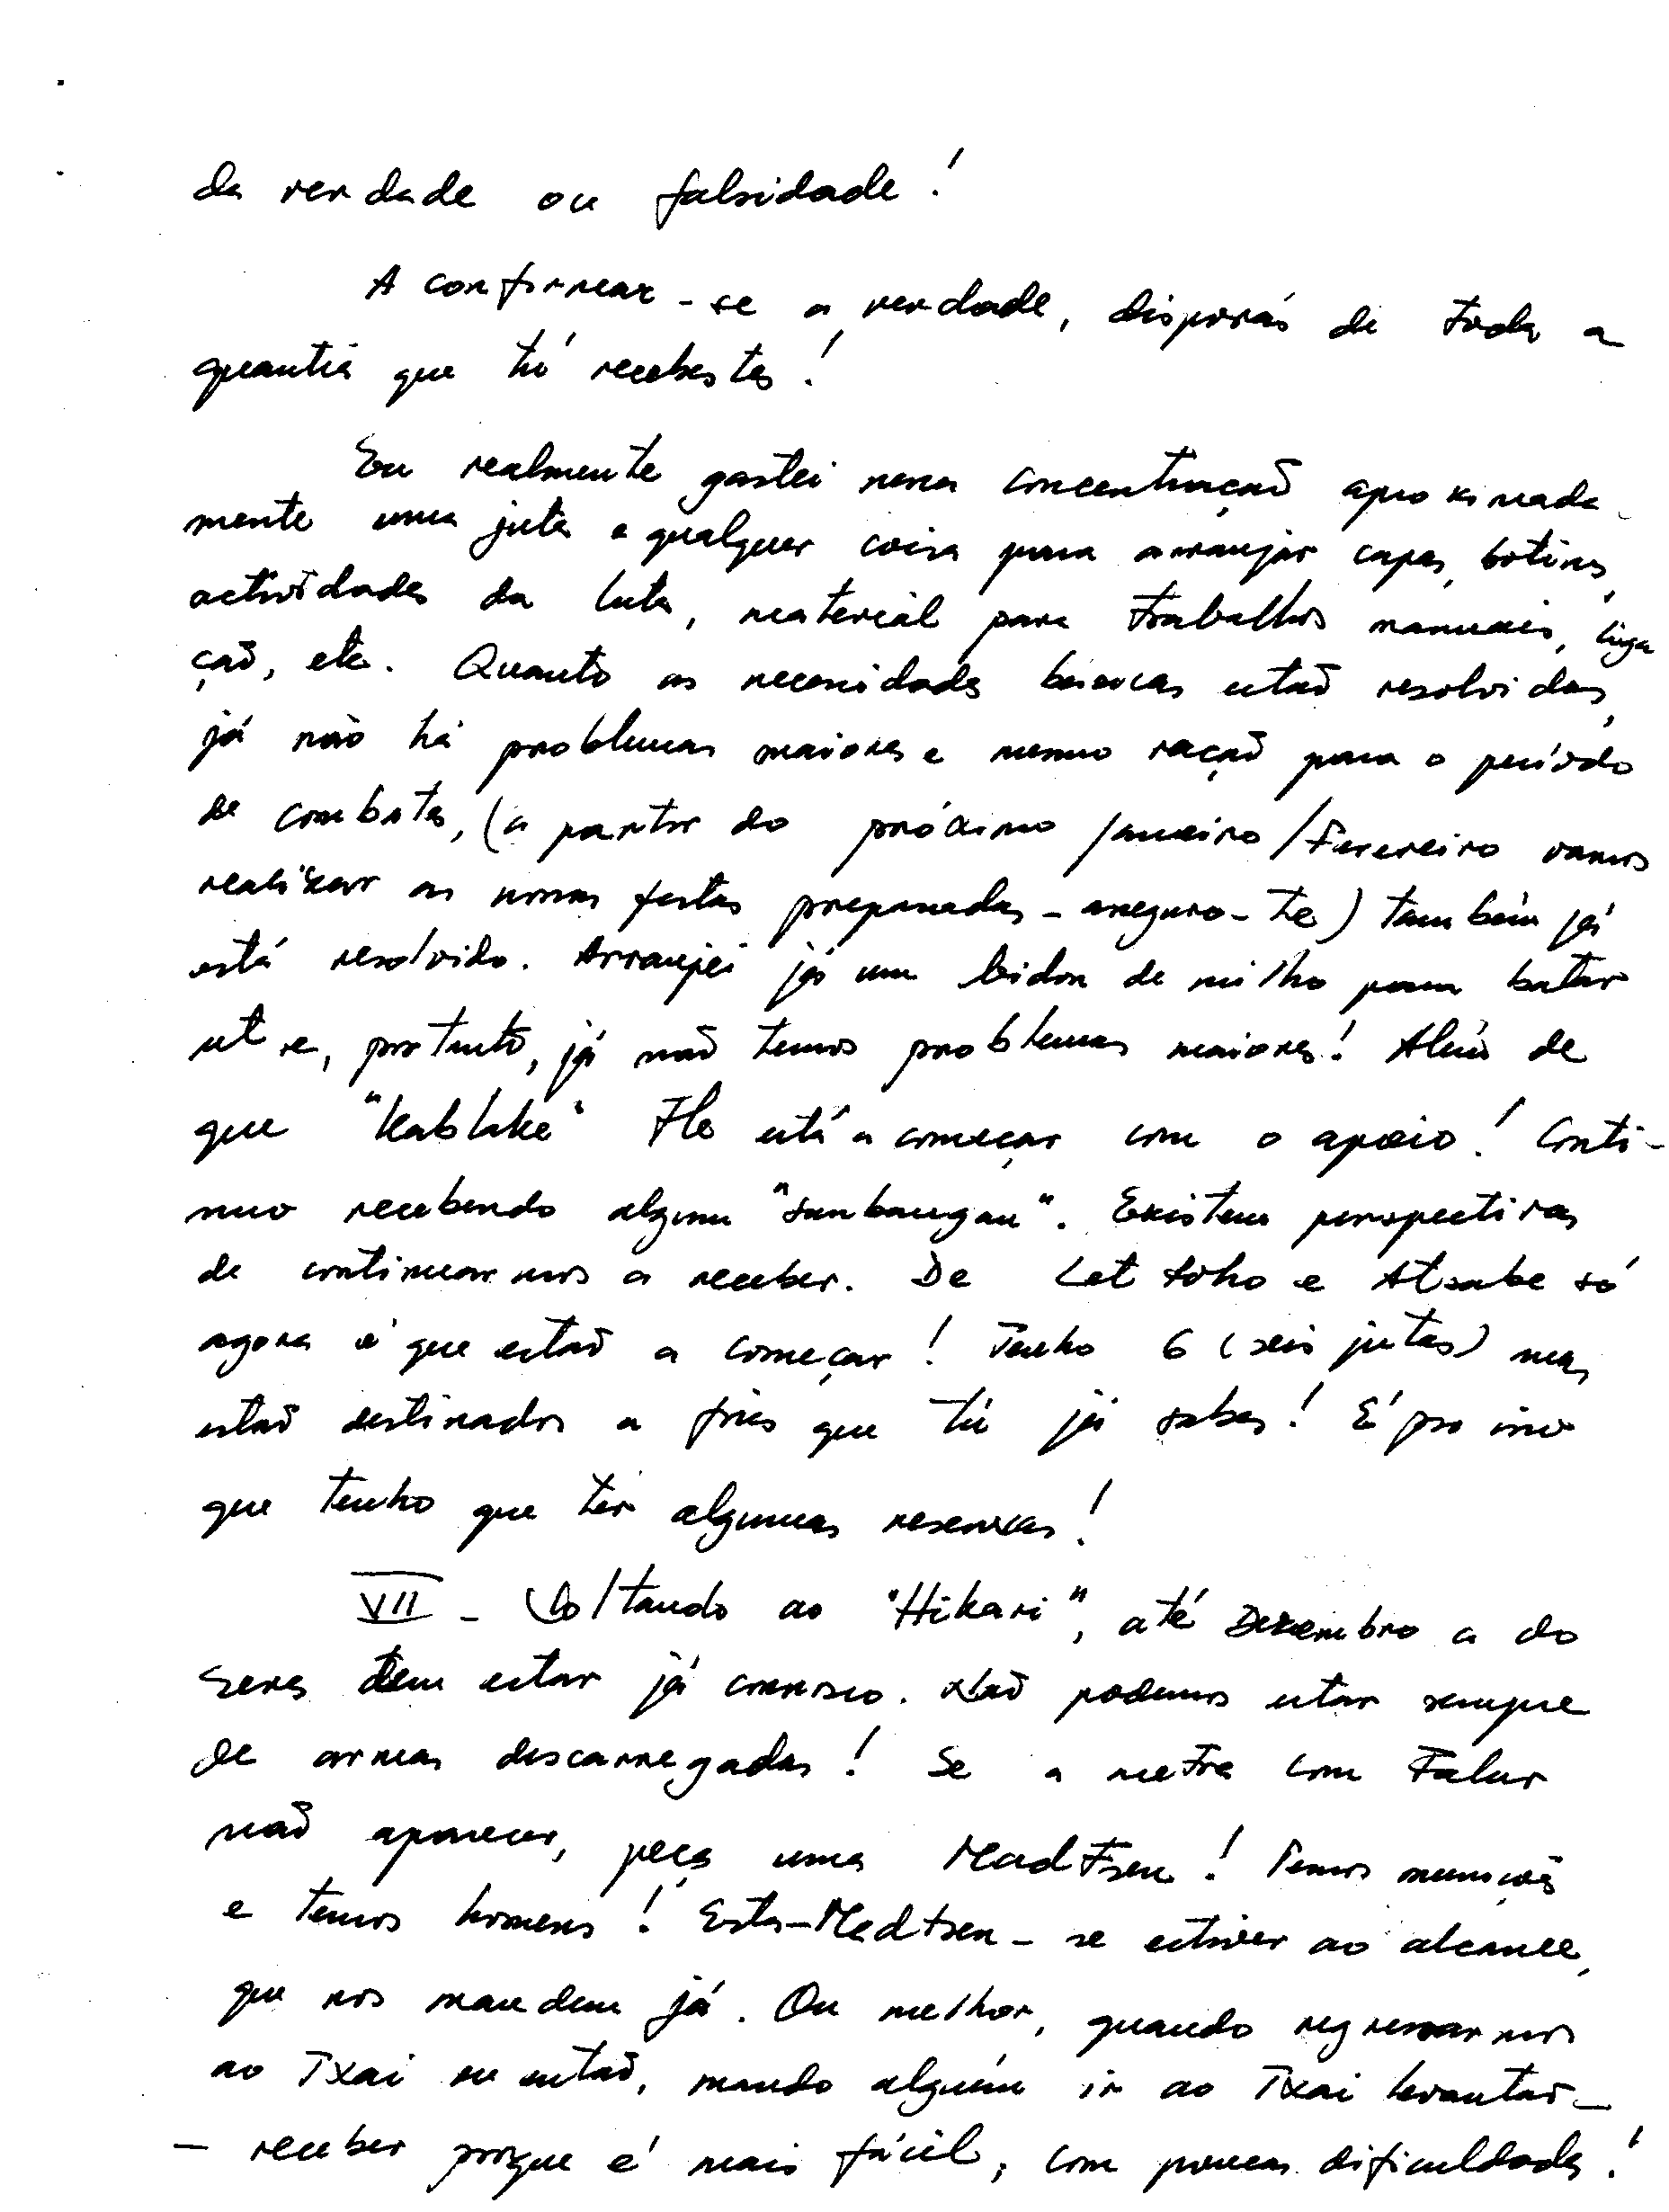 da verdade ou falsidade!
A confirmar-se a verdade, disporás de toda a
quantia que tú recebestes!
Eu realmente gastei nessa concentraçaõ aproximada-
mente uma juta e qualquer coisa para arranjar capas, botins,
actividades da luta, material para trabalhos manuais, liga
çaõ, etc. Quanto as necessidades básicas estaõ resolvidas,
já não há problemas maiores e mesmo raçaõ para o período
de combates, (a partir do próximo Janeiro/Fevereiro vamos
realizar as nossas festas preparadas - asseguro-te) também já
está resolvido. Arranjei já um bidon de milho para batar
ut e, portanto, já naõ temos problemas maiores! Além de
que "Kablake" Flo está a começar com o apoio! Conti-
nuo recebendo algum "sumbangan". Existem perspectivas
de continuarmos a receber. De Let foho e Atsabe só
agora é que estaõ a começar! Tenho 6 (seis jutas) mas
estaõ destinados a fins que tú já sabes! É por isso
que tenho que ter algumas reservas!
VII - Voltando ao "Hikari", até Dezembro a do
Seres tem estar já connosco. Naõ podemos estar sempre
de armas descarregadas! Se a metra com Falur
naõ aparecer, peça uma Madtsen! Temos munições
e temos homens! Esta-Madtsen- se estiver ao alcance,
que nos mandem já. Ou melhor, quando regressarmos
ao Txai ou entaõ, mando alguém ir ao Txai levantar-
- receber porque é mais fácil, com poucas dificuldades!